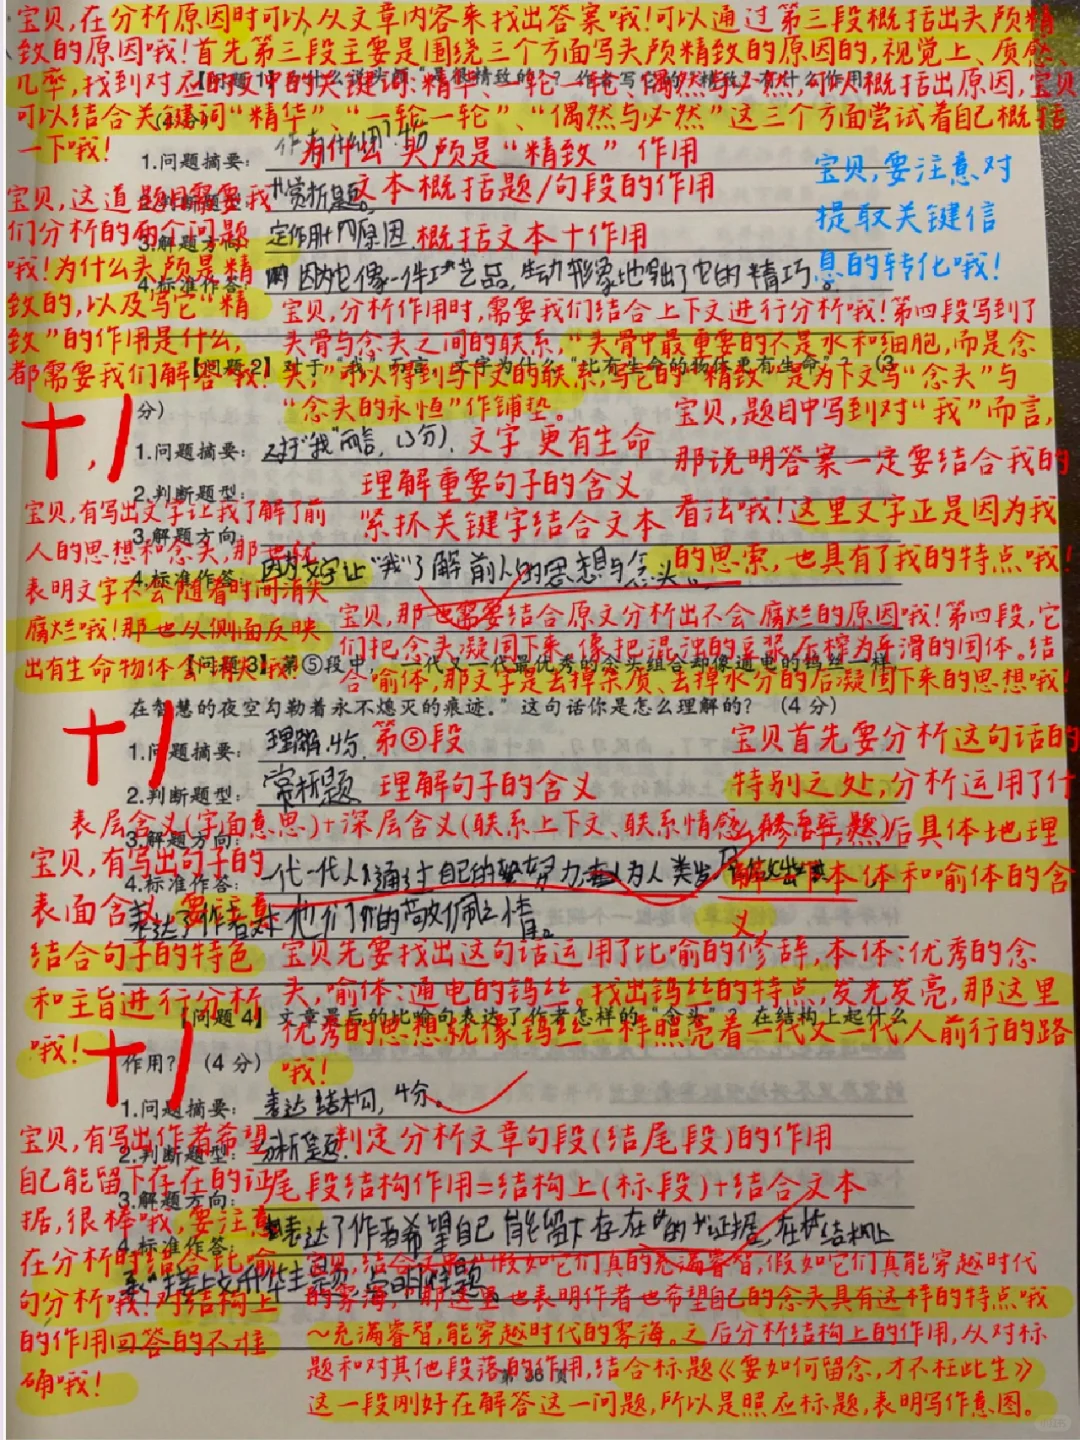 宝贝,在分析原因时可以从文章内容来找出答案哦!可以通过第三段概括出头颅精
致的原因哦!首先第三段主要是围绕三个方面写头颅精致的原因的,视觉上、质感、
几率,找到对应的文中的关键词:精华、一轮一轮、偶然与必然,可以概括出原因,宝贝
可以结合关键词“精华”、“一轮一轮”、“偶然与必然”这三个方面尝试着自己概括
一下哦!
(4分)
作用?4分
1.问题摘要:
为什么 头颅是“精致” 作用
宝贝,要注意对
提取关键信
息的转化哦!
宝贝,这道题目需要我
们分析的两个问题
哦!为什么头颅是精
致的,以及写它“精
致”的作用是什么,
都需要我们解答哦!
2.判断题型:
赏析题。
文本概括题/句段的作用
3.解题方向:
概括文本+作用
4.标准作答:
因为它像一件工艺品,生动形象地写出了它的精巧。
宝贝,分析作用时,需要我们结合上下文进行分析哦!第四段写到了
头骨与念头之间的联系,“头骨中最重要的不是水和细胞,而是念
头。”可以得到与下文的联系,写它的“精致”是为下文写“念头”与
“念头的永恒”作铺垫。
【问题2】对于“我”而言,文字为什么“比有生命的物体更有生命”?(3
分)
+1
1.问题摘要:
对于“我”而言,(3分).
文字 更有生命
宝贝,题目中写到对“我”而言,
那说明答案一定要结合我的
看法哦!这里文字正是因为我
的思索,也具有了我的特点哦!
2.判断题型:
理解重要句子的含义
3.解题方向:
紧抓关键字结合文本
4.标准作答:
因为文字让“我”了解前人的思想与念头。
宝贝,有写出文字让我了解了前
人的思想和念头,那也就
表明文字不会随着时间消失
腐烂哦!那也从侧面反映
出有生命物体会腐烂哦!
宝贝,那也需要结合原文分析出不会腐烂的原因哦!第四段,它
们把念头凝固下来,像把混浊的豆浆压榨为平滑的固体。结
合喻体,那文字是去掉杂质、去掉水分的后凝固下来的思想哦!
【问题3】第⑤段中,“一代又一代最优秀的念头组合却像通电的钨丝一样
在智慧的夜空勾勒着永不熄灭的痕迹。”这句话你是怎么理解的?(4分)
+1
1.问题摘要:
理解 4分
第⑤段
2.判断题型:
赏析题
理解句子的含义
3.解题方向:
表层含义(字面意思)+深层含义(联系上下文、联系情感、主题)
宝贝首先要分析这句话的
特别之处,分析运用了什
么修辞,然后具体地理
解一下本体和喻体的含
义。
4.标准作答:
一代一代人们通过自己的努力,为人类发展做出
表达了作者对他们的敬佩之情。
宝贝,有写出句子的
表面含义,要注意
结合句子的特色
和主旨进行分析
哦!
宝贝先要找出这句话运用了比喻的修辞,本体:优秀的念
头,喻体:通电的钨丝。找出钨丝的特点,发光发亮,那这里
优秀的思想就像钨丝一样照亮着一代又一代人前行的路
哦!
【问题4】文章最后的比喻句表达了作者怎样的“念头”?在结构上起什么
作用?(4分)
+1
1.问题摘要:
表达 结构,4分。
2.判断题型:
分析题.
判定分析文章句段(结尾段)的作用
3.解题方向:
尾段结构作用=结构上(标段)+结合文本
4.标准作答:
表达了作者希望自己能留下存在的“证据”,在结构上
升华主题,点明主题
宝贝,有写出作者希望
自己能留下存在的证
据,很棒哦,要注意
在分析时结合比喻
句分析哦!对结构上
的作用回答的不准
确哦!
宝贝,结合文章“假如它们真的充满睿智,假如它们真能穿越时代
的雾海,”那这里也表明作者也希望自己的念头具有这样的特点哦
~充满睿智,能穿越时代的雾海。之后分析结构上的作用,从对标
题和对其他段落的作用,结合标题《要如何留念,才不枉此生》
这一段刚好在解答这一问题,所以是照应标题,表明写作意图。
第 36 页